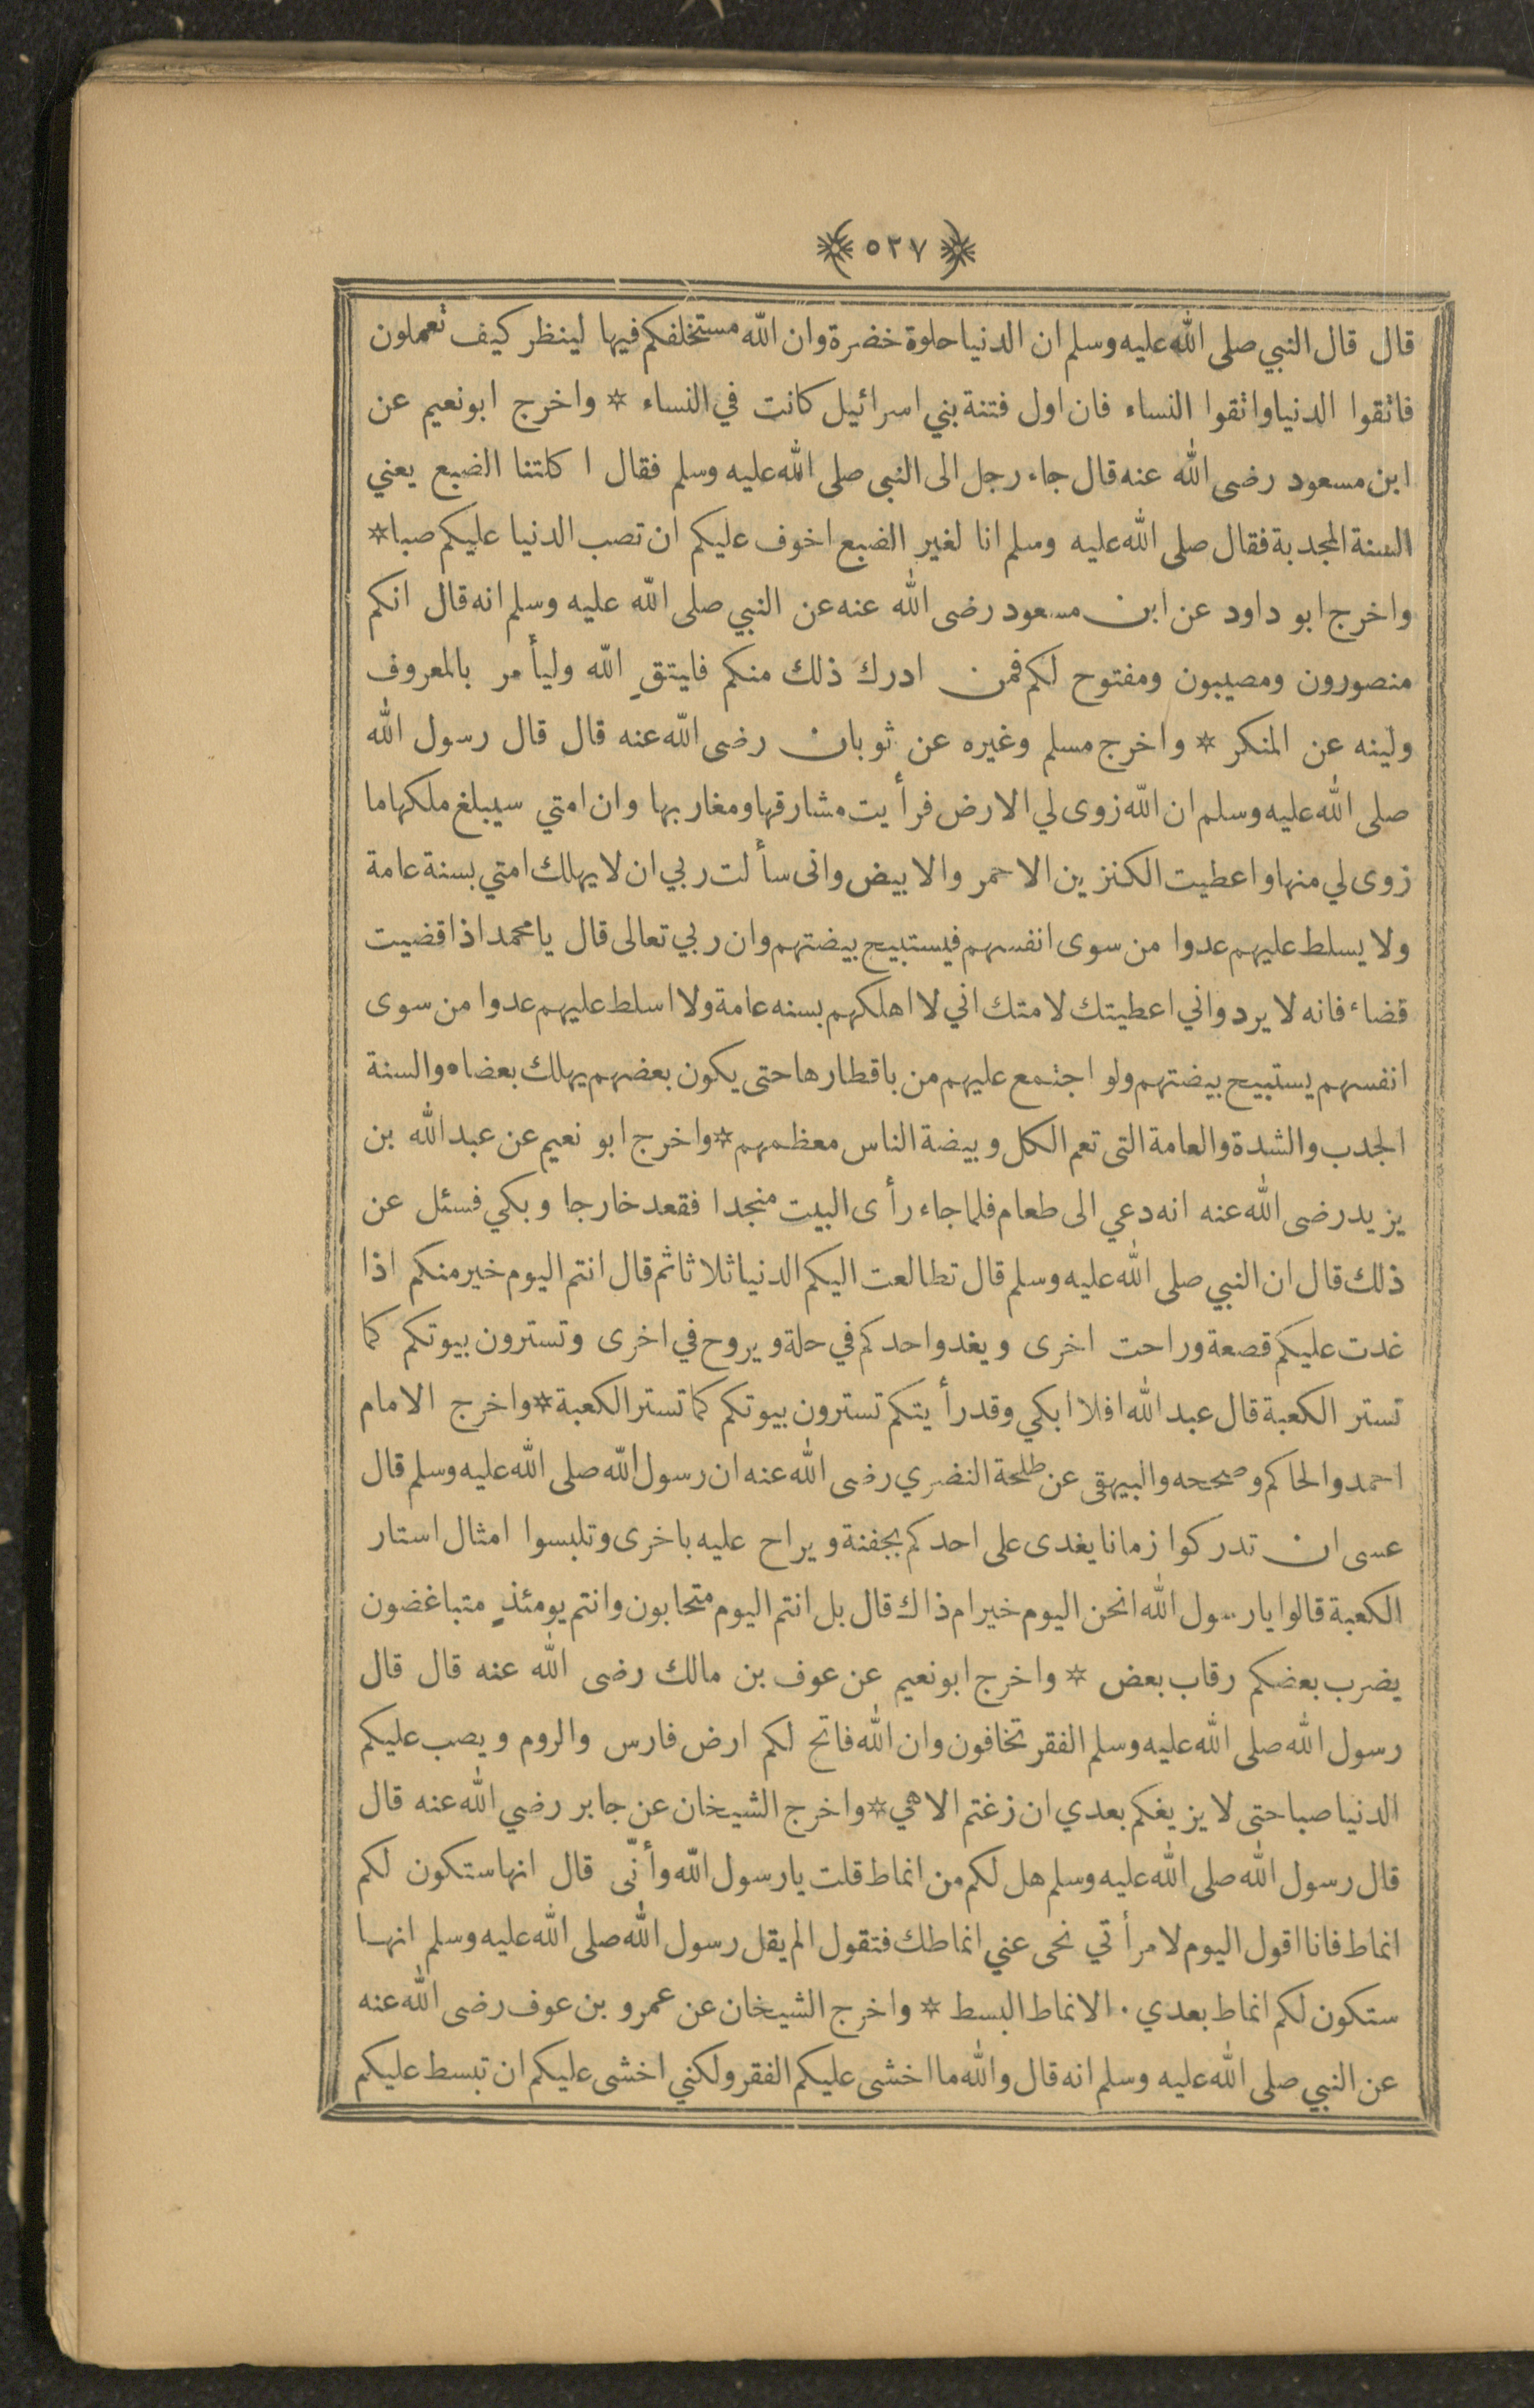 ﴿ ٥٢٧ ﴾
قال قال النبي صلى الله عليه وسلم ان الدنيا حلوة خضرة وان الله مستخلفكم فيها لينظر كيف تعملون
فاتقوا الدنيا واتقوا النساء فان اول فتنة بني اسرائيل كانت في النساء * واخرج ابو نعيم عن
ابن مسعود رضى الله عنه قال جاء رجل الى النبي صلى الله عليه وسلم فقال اكلتنا الضبع يعني
السنة المجدبة فقال صلى الله عليه وسلم انا لغير الضبع اخوف عليكم ان تصب الدنيا عليكم صبا *
واخرج ابو داود عن ابن مسعود رضى الله عنه عن النبي صلى الله عليه وسلم انه قال انكم
منصورون ومصيبون ومفتوح لكم فمن ادرك ذلك منكم فليتقِ الله وليأمر بالمعروف
ولينه عن المنكر * واخرج مسلم وغيره عن ثوبان رضى الله عنه قال قال رسول الله
صلى الله عليه وسلم ان الله زوى لي الارض فرأيت مشارقها ومغاربها وان امتي سيبلغ ملكها ما
زوى لي منها واعطيت الكنزين الاحمر والابيض وانى سألت ربي ان لا يهلك امتي بسنة عامة
ولا يسلط عليهم عدوا من سوى انفسهم فيستبيح بيضتهم وان ربي تعالى قال يا محمد اذا قضيت
قضاء فانه لا يرد واني اعطيتك لامتك اني لا اهلكهم بسنه عامة ولا اسلط عليهم عدوا من سوى
انفسهم يستبيح بيضتهم ولو اجتمع عليهم من باقطارها حتى يكون بعضهم يهلك بعضا ٠ والسنة
الجدب والشدة والعامة التى تعم الكل وبيضة الناس معظمهم * واخرج ابو نعيم عن عبد الله بن
يزيد رضى الله عنه انه دعي الى طعام فلما جاء رأى البيت منجدا فقعد خارجا وبكي فسئل عن
ذلك قال ان النبي صلى الله عليه وسلم قال تطالعت اليكم الدنيا ثلاثا ثم قال انتم اليوم خير منكم اذا
غدت عليكم قصعة وراحت اخرى ويغدو احدكم في حلة ويروح في اخرى وتسترون بيوتكم كما
تستر الكعبة قال عبد الله افلا ابكي وقد رأيتكم تسترون بيوتكم كما تستر الكعبة * واخرج الامام
احمد والحاكم وصححه والبيهقى عن طلحة النضري رضى الله عنه ان رسول الله صلى الله عليه وسلم قال
عسى ان تدركوا زمانا يغدى على احدكم بجفنة ويراح عليه باخرى وتلبسوا امثال استار
الكعبة قالوا يا رسول الله انحن اليوم خير ام ذاك قال بل انتم اليوم متحابون وانتم يومئذٍ متباغضون
يضرب بعضكم رقاب بعض * واخرج ابو نعيم عن عوف بن مالك رضى الله عنه قال قال
رسول الله صلى الله عليه وسلم الفقر تخافون وان الله فاتح لكم ارض فارس والروم ويصب عليكم
الدنيا صبا حتى لا يزيغكم بعدي ان زغتم الا هي * واخرج الشيخان عن جابر رضي الله عنه قال
قال رسول الله صلى الله عليه وسلم هل لكم من انماط قلت يا رسول الله وأنّى قال انها ستكون لكم
انماط فانا اقول اليوم لامرأتي نحى عني انماطك فتقول الم يقل رسول الله صلى الله عليه وسلم انها
ستكون لكم انماط بعدي ٠ الانماط البسط * واخرج الشيخان عن عمرو بن عوف رضى الله عنه
عن النبي صلى الله عليه وسلم انه قال والله ما اخشى عليكم الفقر ولكني اخشى عليكم ان تبسط عليكم